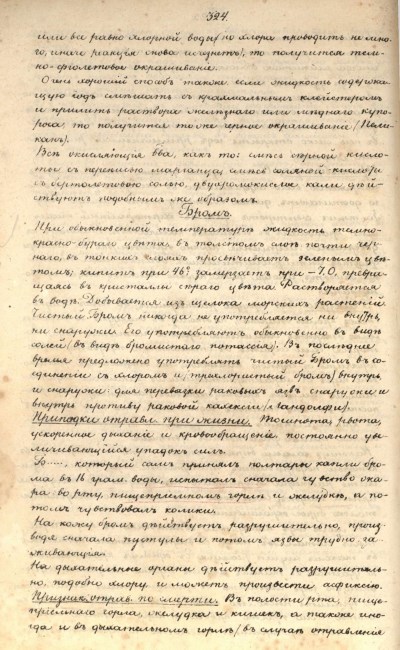 324
или все равно хлорной воды (но хлора проводить не мно-
го, иначе реакція снова исчезнетъ), то получится тем-
но-фіолетовое окрашиваніе.
Очень хорошій способъ также если жидкость содержа-
щую іодъ смѣшать съ крахмальнымъ клейстеромъ
и прилить раствора желѣзнаго или мѣднаго купо-
роса, то получится тоже черное окрашиваніе (Пели-
канъ).
Всѣ окисляющія в-ва, какъ то: смѣсь сѣрной кисло-
ты съ перекисью марганца, смѣсь соляной кислоты
съ бертолетовою солью, двухромокислое кали дѣй-
ствуютъ подобнымъ же образомъ.
Бромъ.
При обыкновенной температурѣ жидкость темно-
красно-бураго цвѣта, въ толстомъ слоѣ почти чер-
наго, въ тонкихъ слояхъ просвѣчиваетъ зеленымъ цвѣ-
томъ; кипитъ при 46°, замерзаетъ при −7.0, превра-
щаясь въ кристаллы сѣраго цвѣта. Растворяется
въ водѣ. Добывается изъ щелока морскихъ растеній.
Чистый Бромъ никогда не употребляется ни внутрь,
ни снаружи. Его употребляютъ обыкновенно въ видѣ
солей (въ видѣ бромистаго потассія). Въ послѣднее
время предложено употреблять чистый Бромъ въ со-
единеніи съ хлоромъ (треххлористый бромъ) внутрь
и снаружи: для перевязки раковыхъ язвъ снаружи и
внутрь противъ раковой кахексіи (Ландольфи).
Припадки отравл. при жизни. Тошнота, рвота,
ускоренное дыханіе и кровообращеніе, постоянно уве-
личивающійся упадокъ силъ.
Б....., который самъ принялъ полторы капли бро-
ма въ 16 грам. воды, испыталъ сначала чувство ожо-
га во рту, пищепріемномъ горлѣ и желудкѣ, а по-
томъ чувствовалъ колики.
На кожу бромъ дѣйствуетъ разрушительно, произ-
водя сначала пустулы и потомъ язвы трудно за-
живающія.
На дыхательные органы дѣйствуетъ разрушитель-
но, подобно хлору и можетъ произвести асфиксію.
Признаки отрав. по смерти. Въ полости рта, пище-
пріемнаго горла, желудка и кишекъ, а также ино-
гда и въ дыхательномъ горлѣ (въ случаѣ отравленія